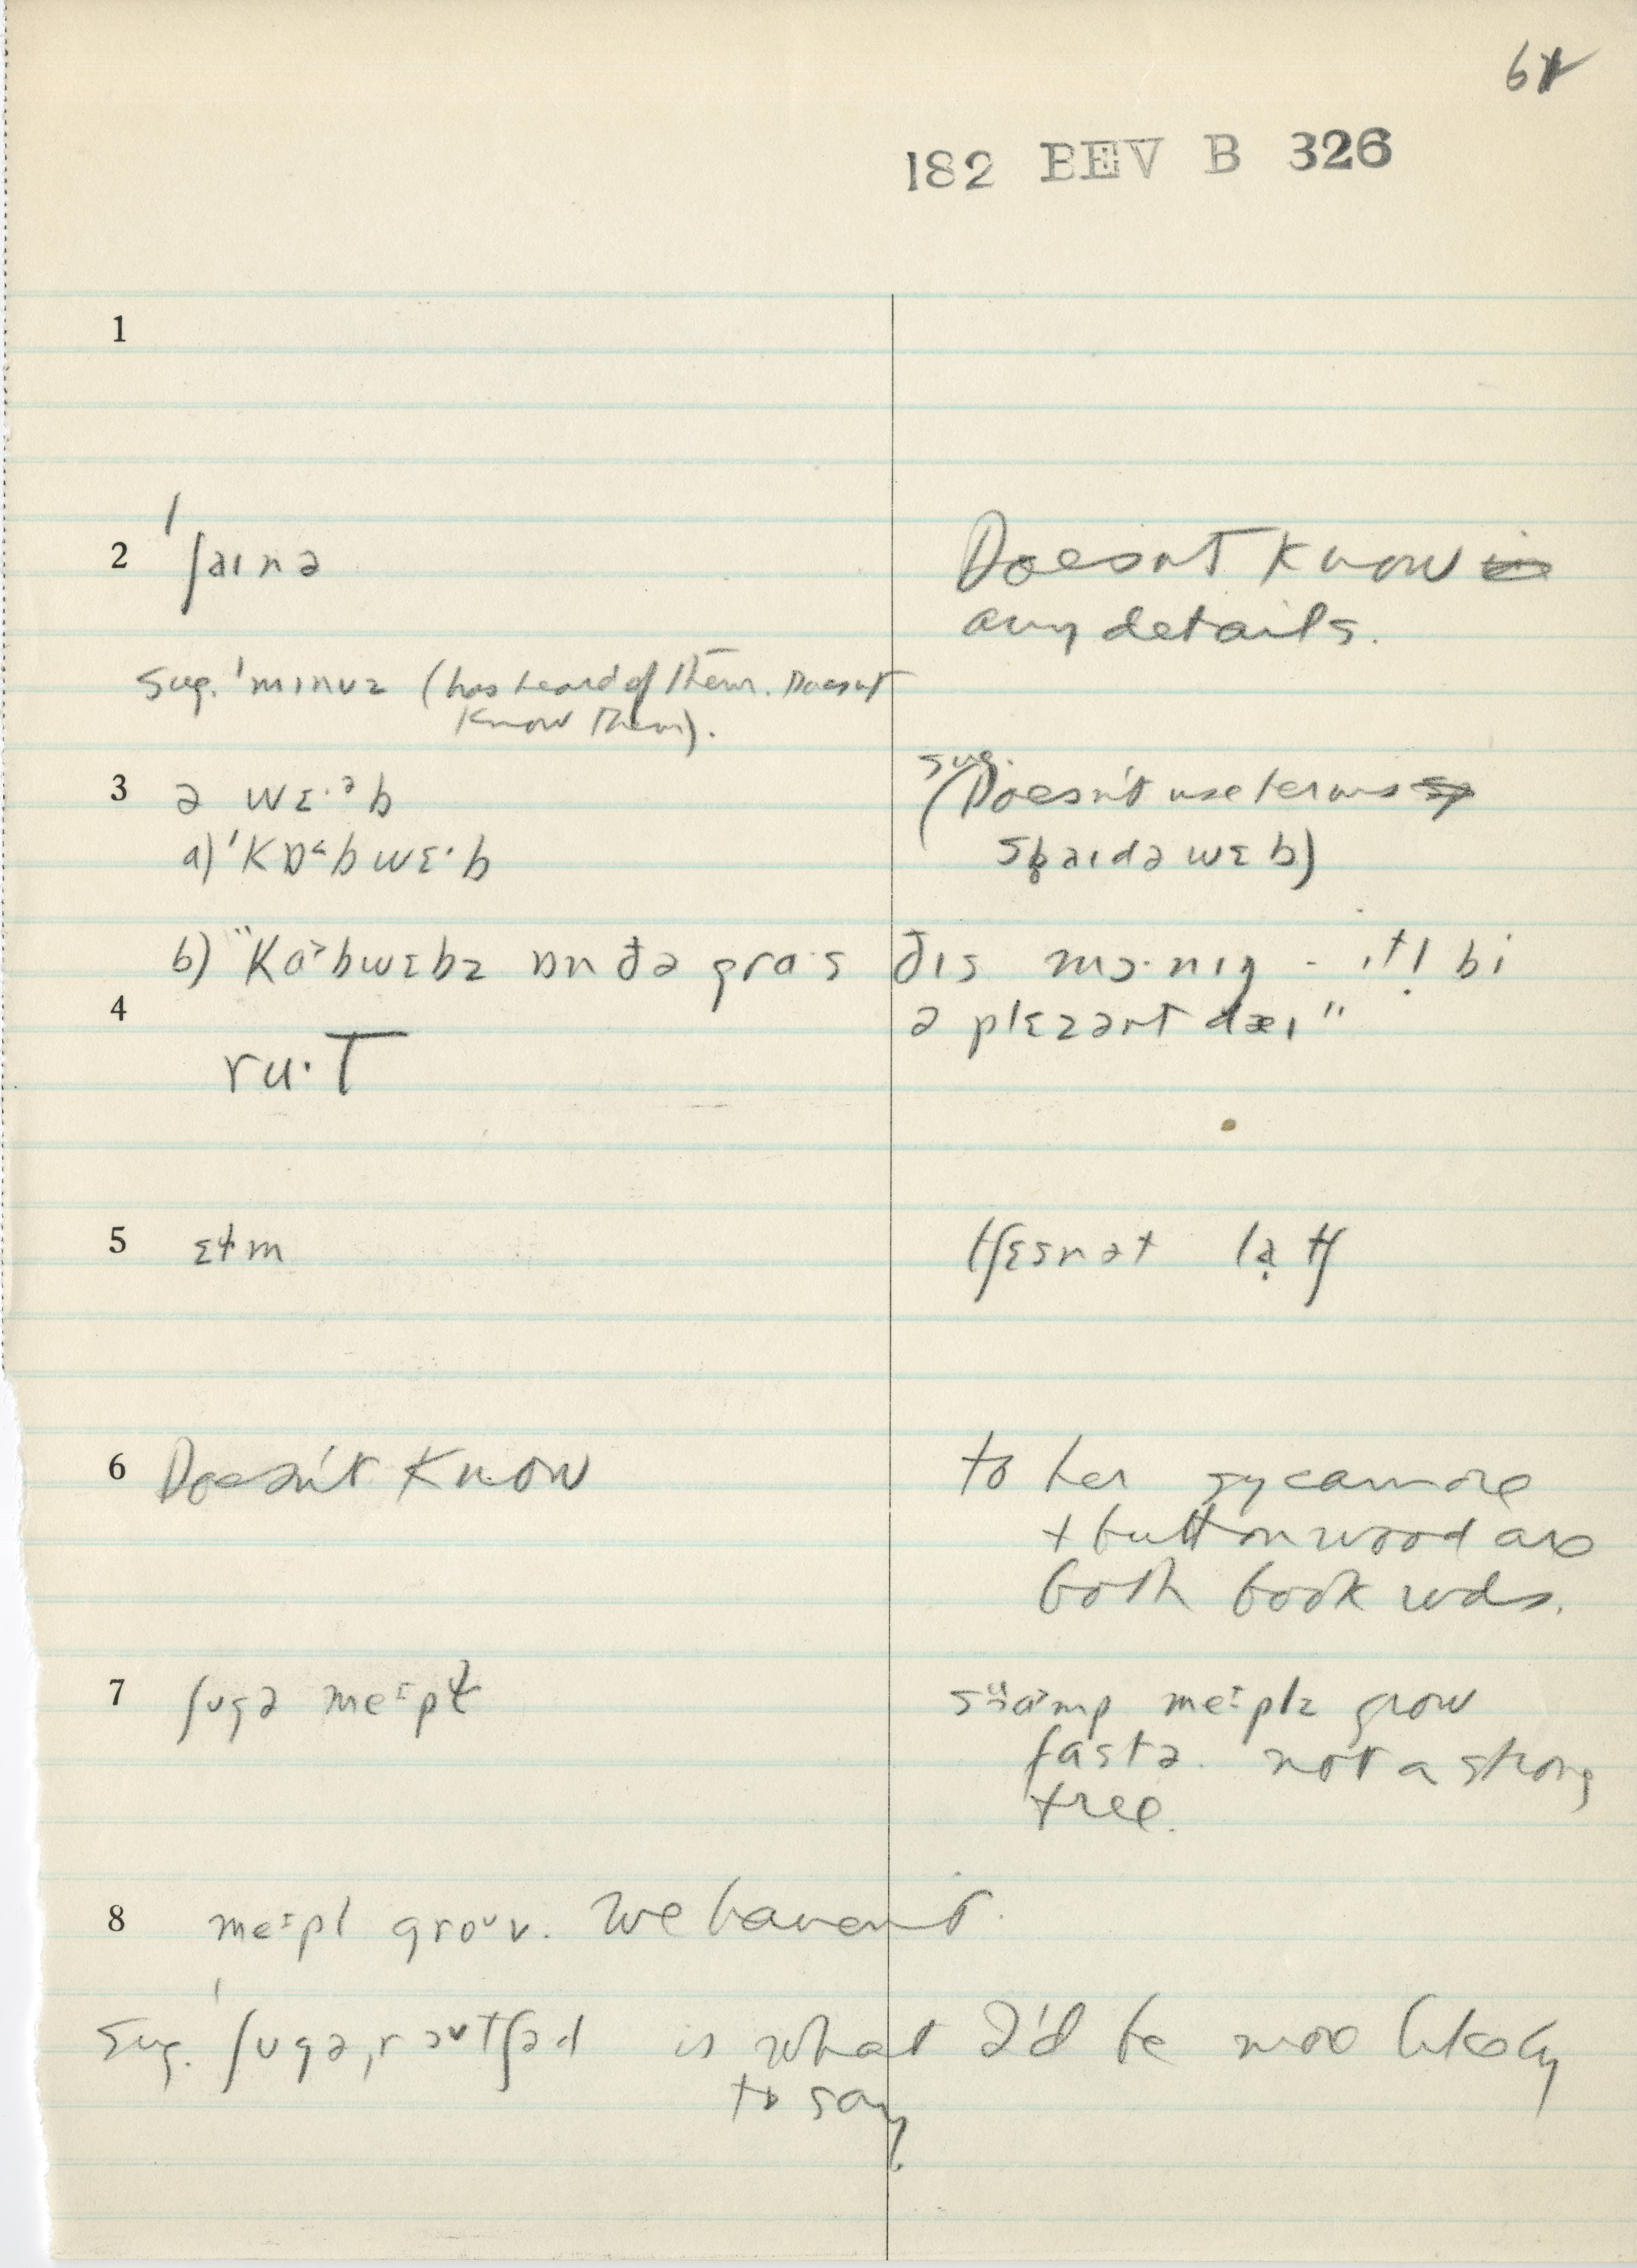 182 BEV B 326
1
2 ˈʃaɪnə Doesn't know
any details.
Sug. ˈmɪnʊz (has heard of them. Doesn't
know them).
sug.
3 ə wɛ·ᵊb (Doesn't use terms
a) ˈkɒ˂bwɛ·b spaɪdə wɛb)
b) "kɑ˃bwɛbz ɒn ðə gra·s ðɪs mɔ·nɪŋ - ɪtl̩ bi
4 ə plɛzənt dæɪ"
ru·T
5 ɛɫm tʃɛsnət latʃ
6 Doesn't know to her sycamore
+ buttonwood are
both book wds.
7 ʃʊgə meɪpɫ swɑmp meɪplz grow
fastə. not a strong
tree.
8 meɪpl groʊv. We haven't.
Sug. ˈʃʊgəˌr ɔʊtʃəd is what I'd be more likely
to say